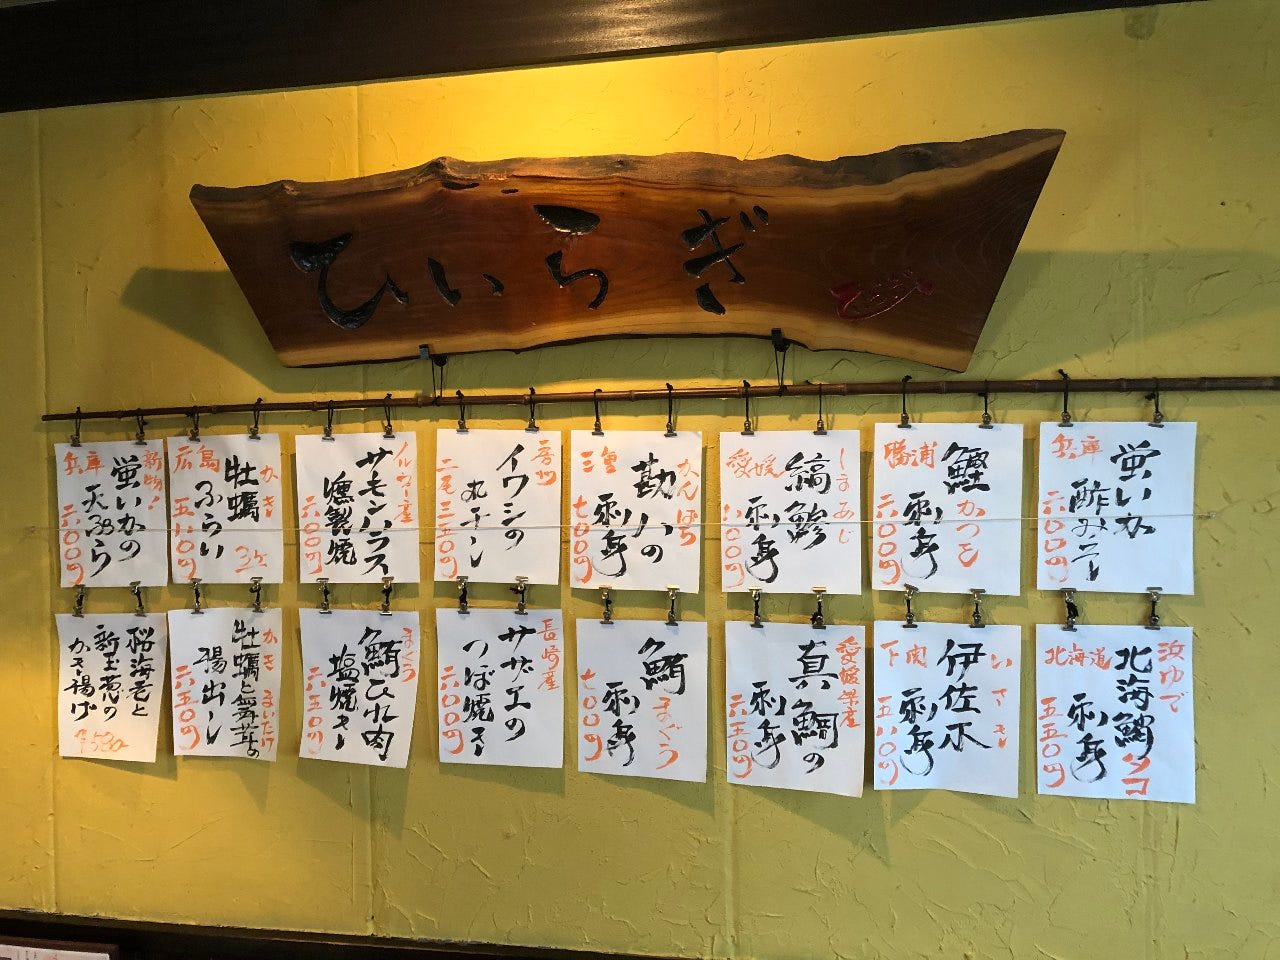 ひいらぎ
兵庫
蛍いか
酢みそ
六〇〇円
勝浦
鰹かつを
刺身
六〇〇円
しまあじ
愛媛
縞鯵
刺身
八〇〇円
かんぱち
三重
勘八の
刺身
七〇〇円
イワシの
丸干し
二尾三五〇円
ノルウェー産
サモンハラス
燻製焼
六〇〇円
広島
かき
牡蠣
ふらい
3ヶ
五八〇円
新物!
兵庫
蛍いかの
天ぷら
六〇〇円
浜ゆで
北海道
北海鮹タコ
刺身
五五〇円
いさき
下関
伊佐木
刺身
五八〇円
愛媛県産
真鯛の
刺身
六五〇円
鮪まぐろ
刺身
七〇〇円
長崎産
サザエの
つぼ焼き
六〇〇円
まぐろ
鮪ひれ肉
塩焼き
六五〇円
かきまいたけ
牡蠣と舞茸の
揚出し
六五〇円
桜海老と
新玉葱の
かき揚げ
¥580-